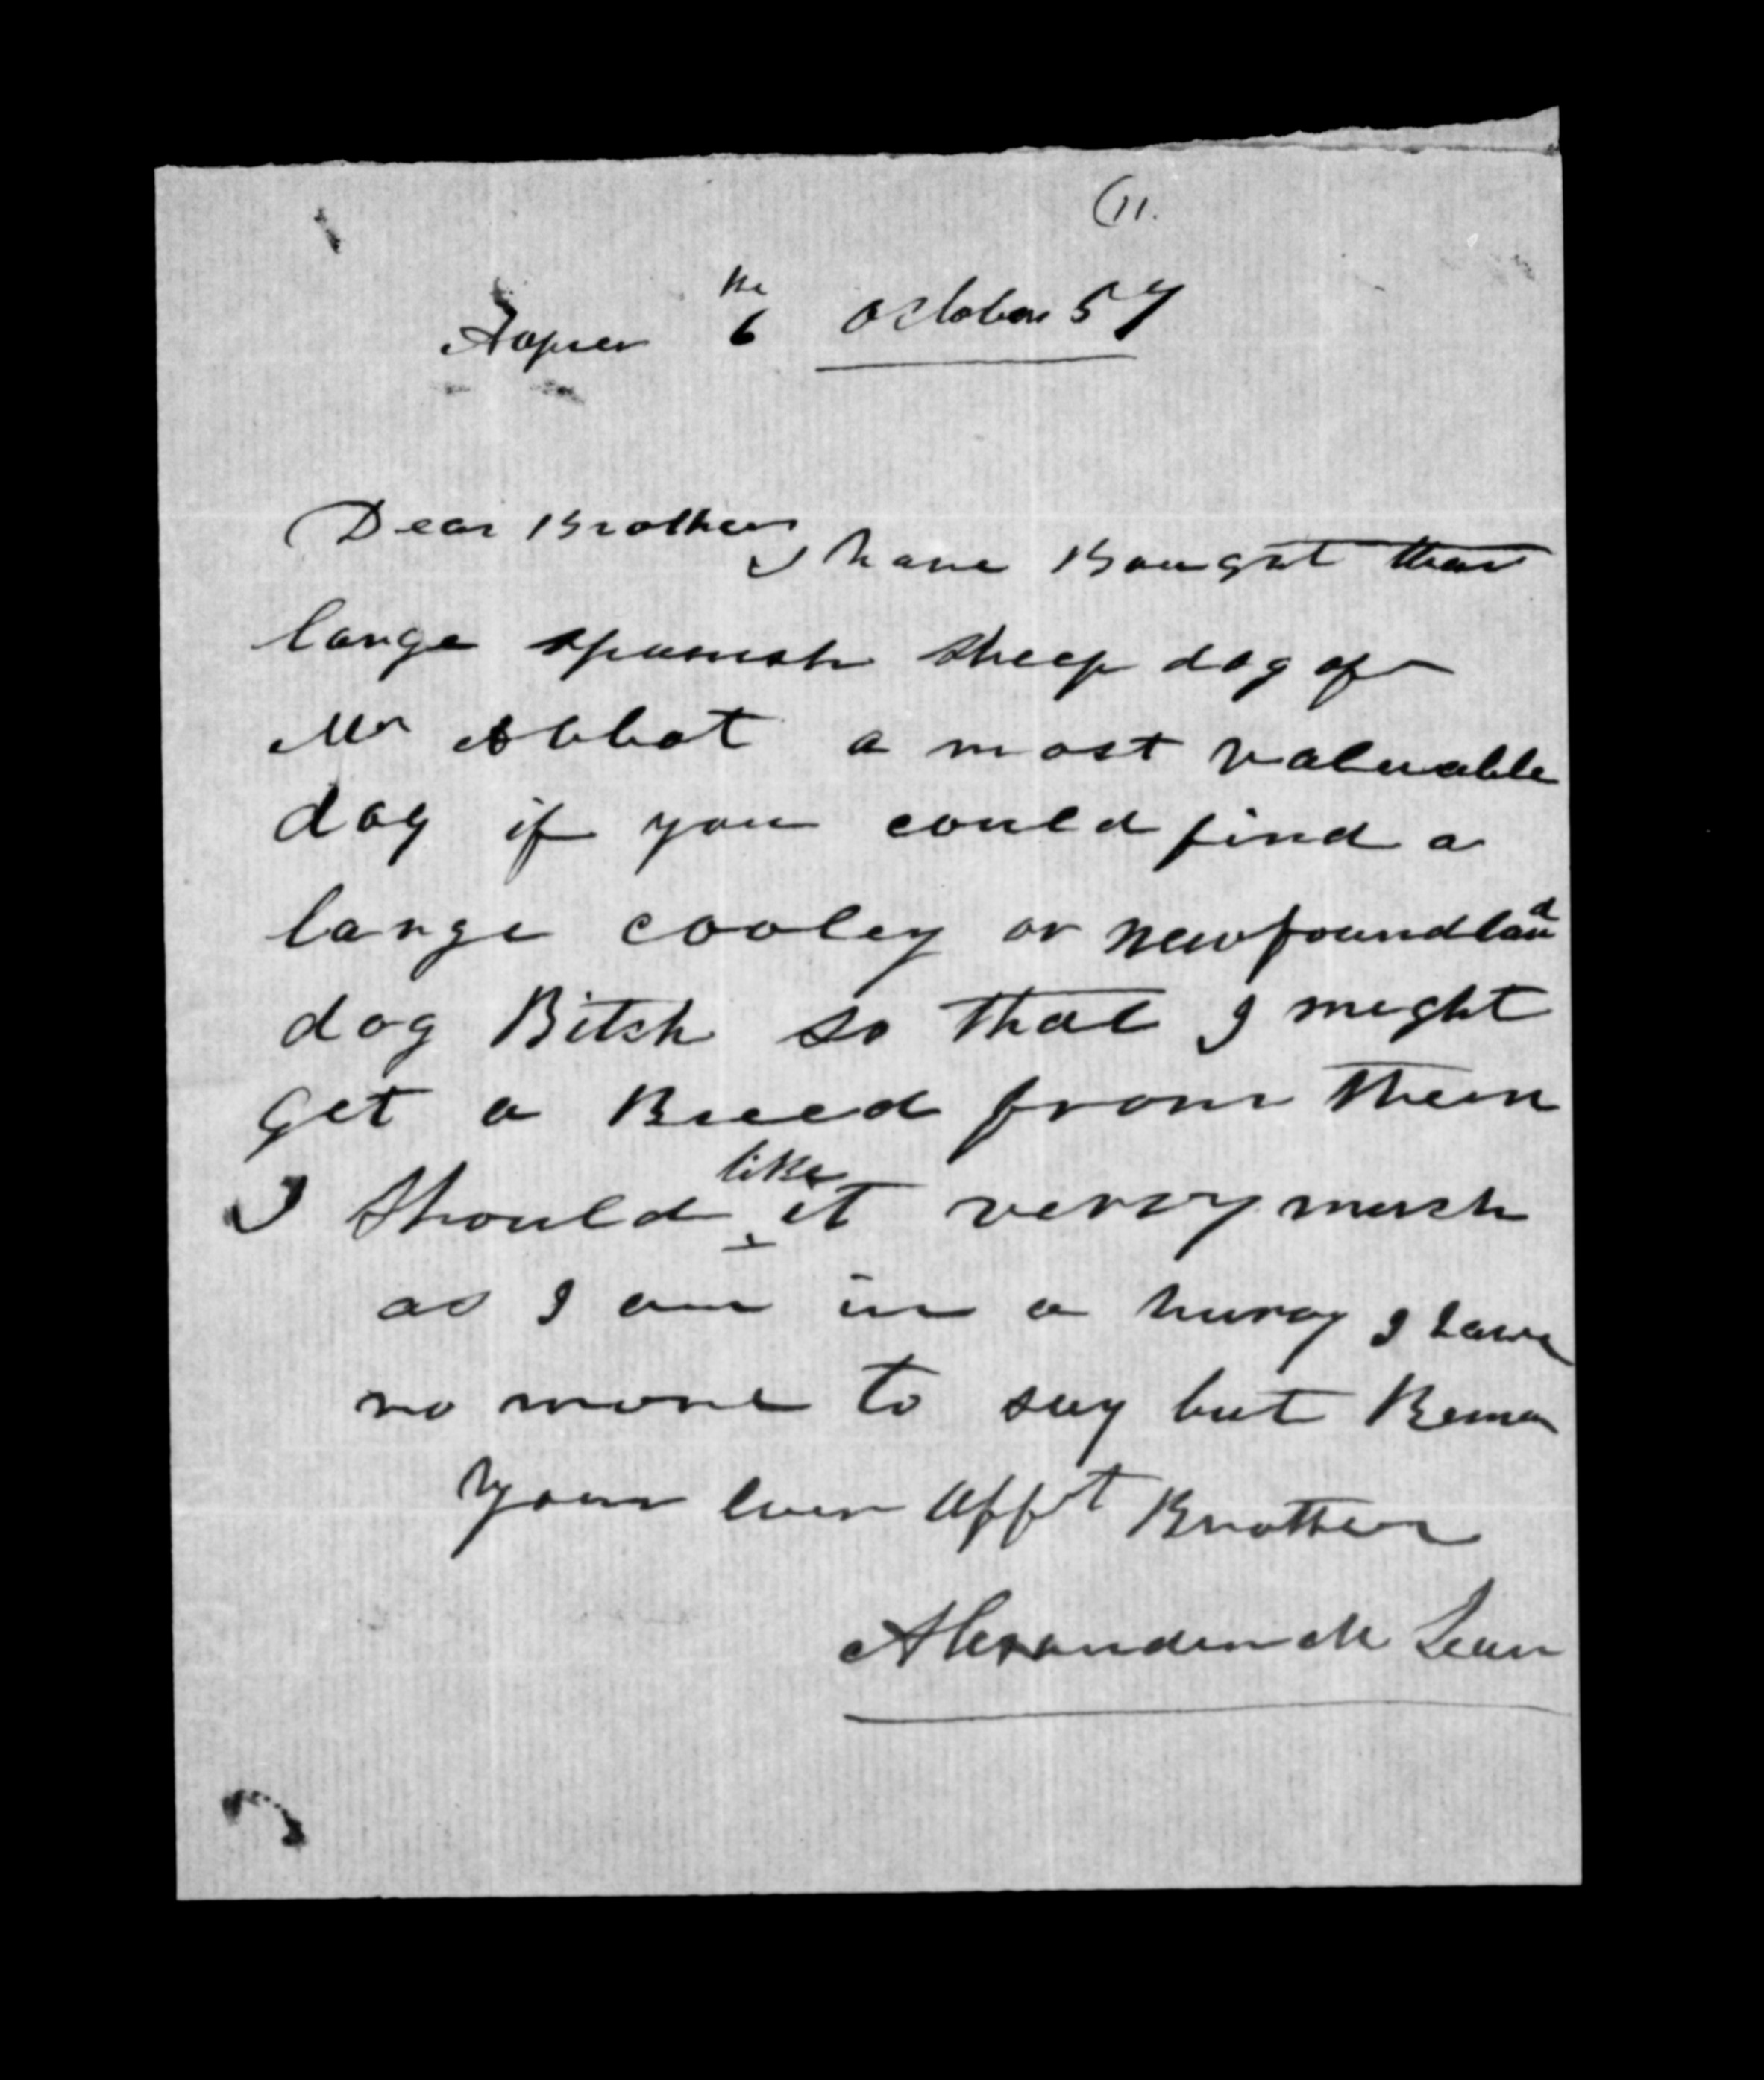 (11.
Napier 6 the October 57
Dear Brother
I have Bought that
large spanish sheep dog of
Mr Abbot a most valuable
dog if you could find a
large cooley or newfoundland
dog Bitsh so that I meght
get a Breed from them
I should like it verry mush
as I am in a hurry I have
no more to say but Reman
your ever afft Brother
Alexander Mc Lean